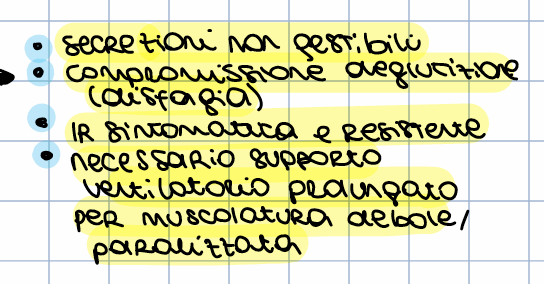 • secrezioni non gestibili
• compromissione deglutizione
(disfagia)
• IR sintomatica e resistente
• necessario supporto
ventilatorio prolungato
per muscolatura debole/
paralizzata